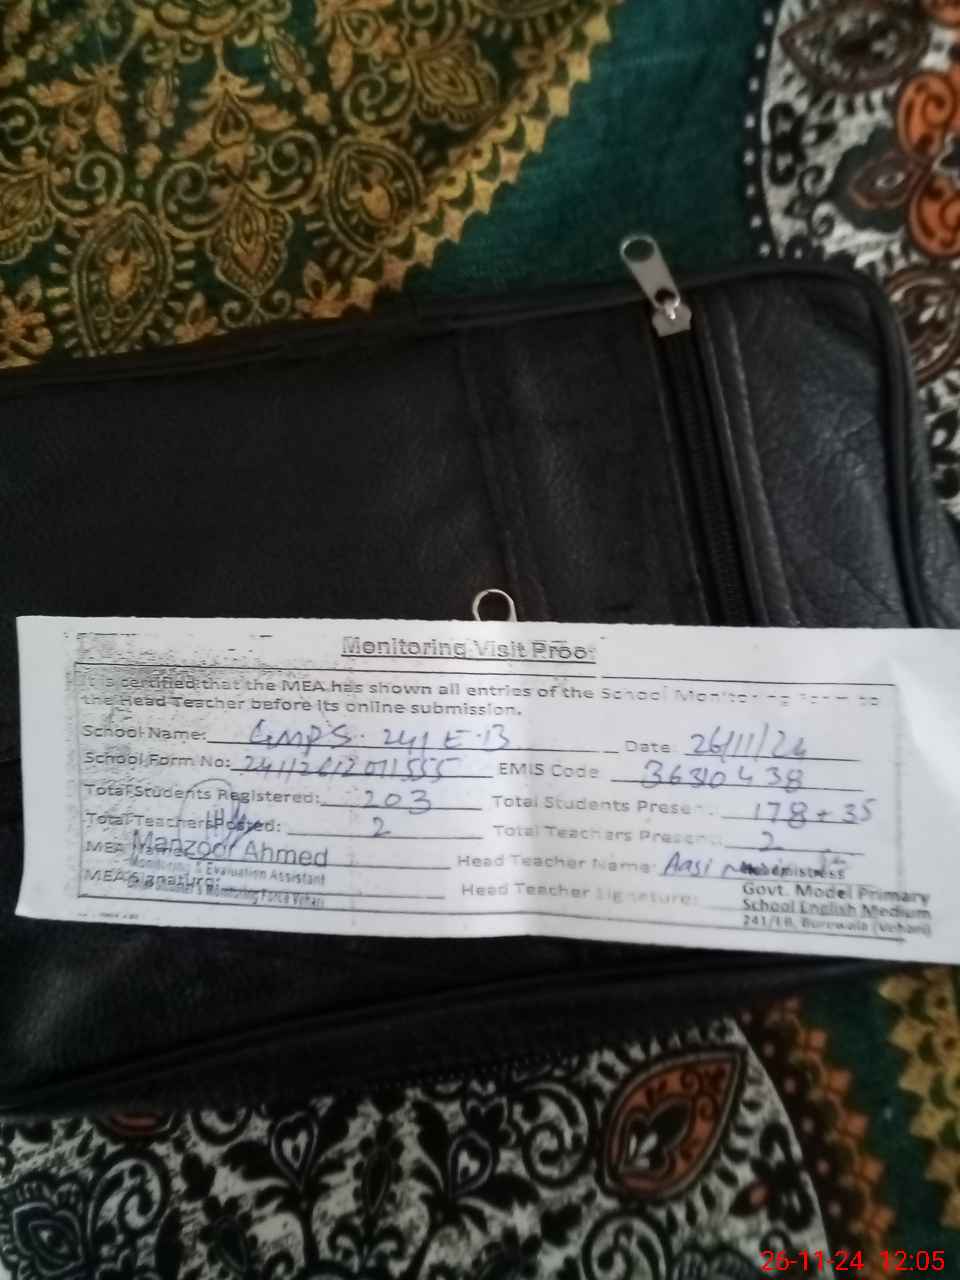 Monitoring Visit Proof
It is certified that the MEA has shown all entries of the School Monitoring Form to
the Head Teacher before its online submission.
School Name: GMPS. 241 E.B Date: 26/11/24
School Form No: EMIS Code 36310438
Total Students Registered: 203 Total Students Present: 178+35
Total Teachers Posted: 2 Total Teachers Present: 2
MEA Manzoor Ahmed Head Teacher Name: Headmistress
Monitoring & Evaluation Assistant
MEA Signature: Monitoring Force Vehari Head Teacher Signature: Govt. Model Primary
School English Medium
241/EB, Burewala (Vehari)
26-11-24 12:05